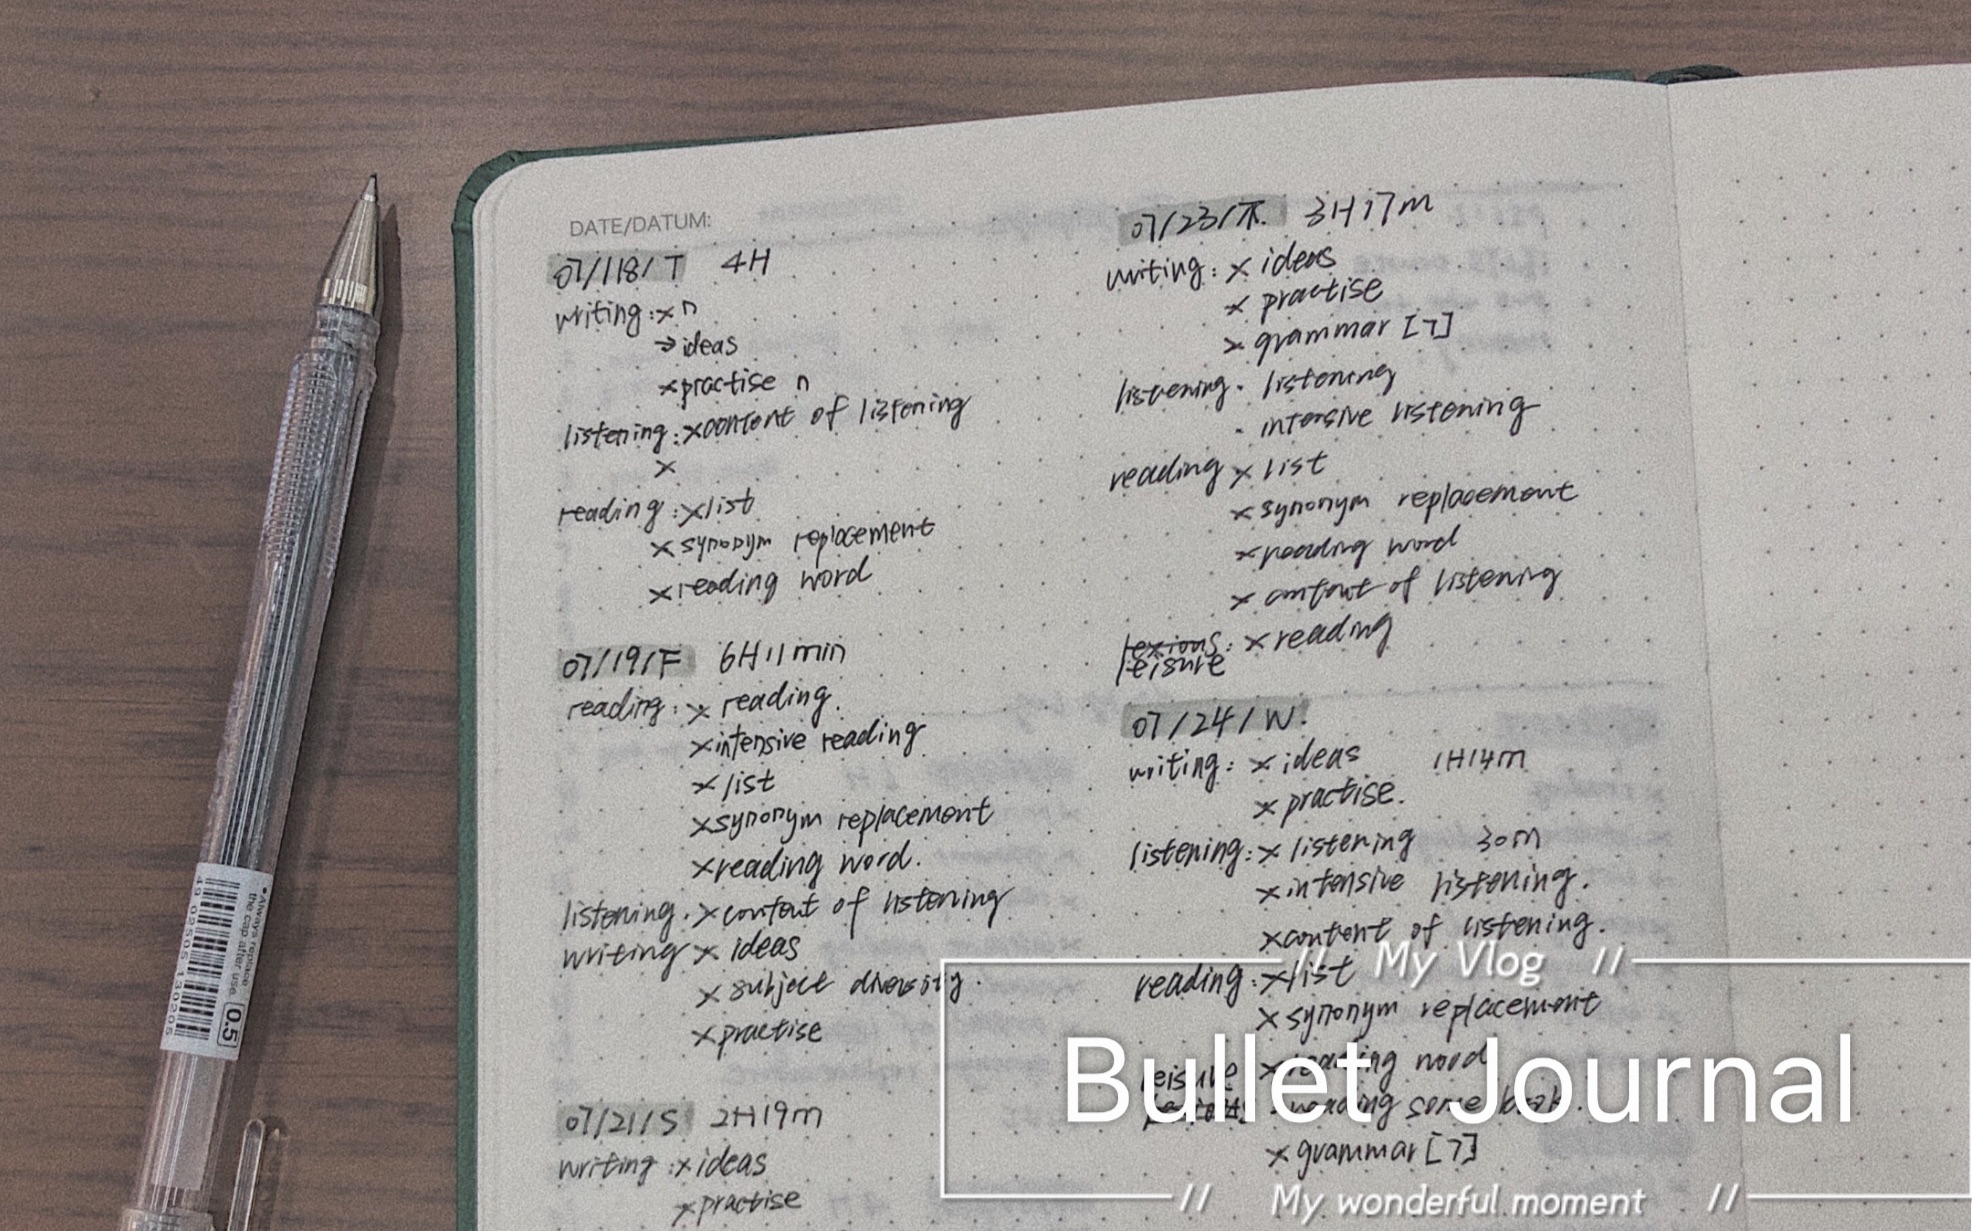 DATE/DATUM:
07/18/T 4H
writing: × n
→ ideas
× practise n
listening: × content of listening
×
reading: × list
× synonym replacement
× reading word
07/19/F 6H11min
reading: × reading.
× intensive reading
× list
× synonym replacement
× reading word.
listening. × content of listening
writing × ideas
× subject diversity.
× practise
07/21/S 2H19m
writing: × ideas
× practise
07/23/木. 3H17m
writing: × ideas
× practise
> grammar [7]
listening. listening
· intensive listening
reading × list
× synonym replacement
× reading word
× content of listening
: × reading
leisure
07/24/W.
writing: × ideas 1H14m
× practise.
listening: × listening 30m
× intensive listening.
× content of listening.
reading: × list
× synonym replacement
× reading word
leisure
reading some book.
× grammar [7]
// My Vlog //
Bullet Journal
// My wonderful moment //
•Always replace
the cap after use.
0.5